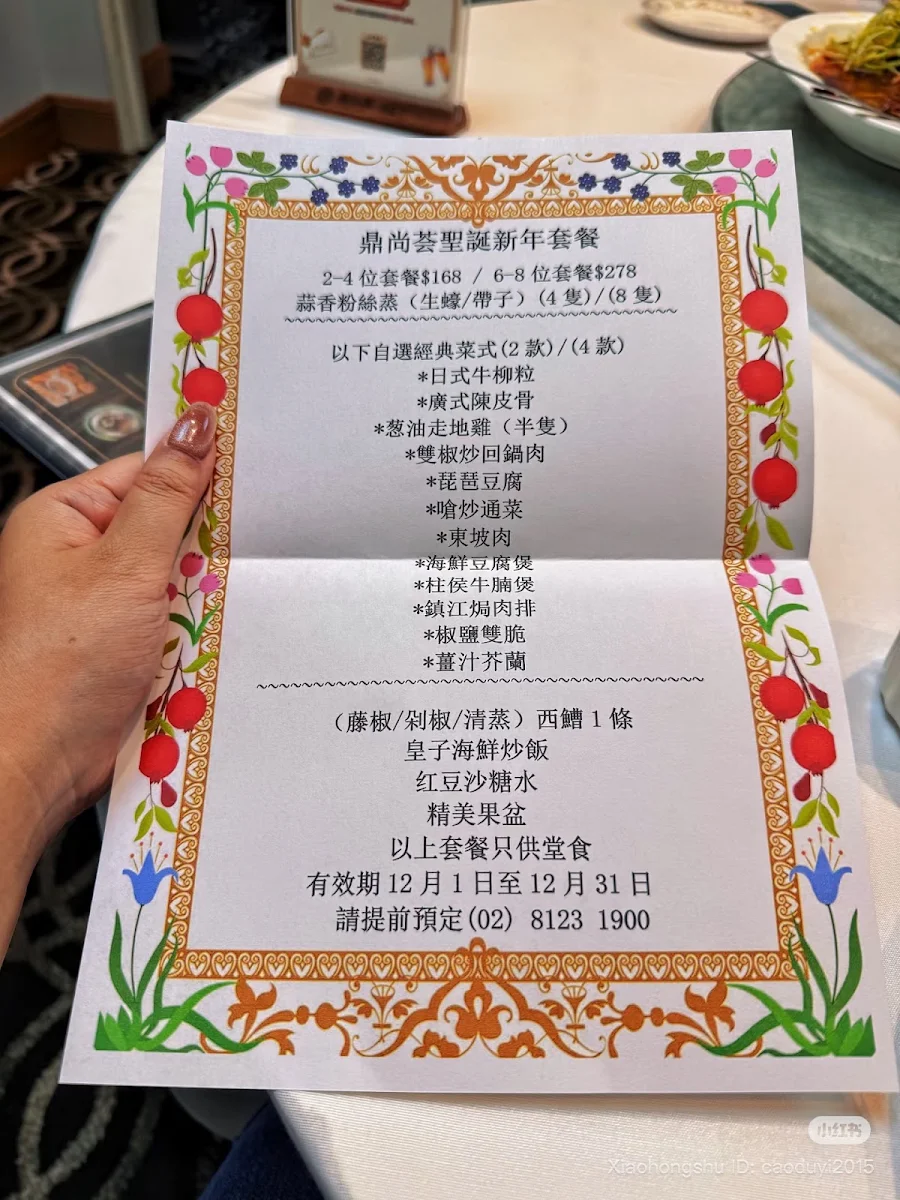 鼎尚荟聖誕新年套餐
2-4位套餐$168 / 6-8位套餐$278
蒜香粉絲蒸（生蠔/帶子）(4隻)/(8隻)
以下自選經典菜式(2款)/(4款)
*日式牛柳粒
*廣式陳皮骨
*葱油走地雞（半隻）
*雙椒炒回鍋肉
*琵琶豆腐
*嗆炒通菜
*東坡肉
*海鮮豆腐煲
*柱侯牛腩煲
*鎮江焗肉排
*椒鹽雙脆
*薑汁芥蘭
（藤椒/剁椒/清蒸）西鰽1條
皇子海鮮炒飯
红豆沙糖水
精美果盆
以上套餐只供堂食
有效期12月1日至12月31日
請提前預定(02) 8123 1900
小红书
Xiaohongshu ID: caoduyi2015